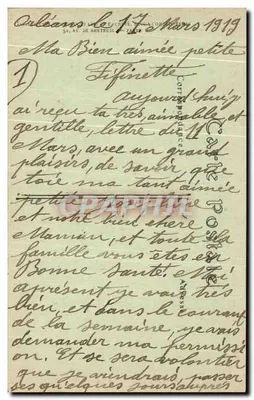 Orléans le 17 Mars 1919
Ma Bien aimée petite
1) Fifinette
aujourd'hui j
ai reçu ta très aimable, et
gentille, lettre du 11
Mars, avec un grand
plaisirs, de savoir, que
toie ma tant aimée
petite
et notre bien chère
Maman, et toute la
famille vous êtes en
Bonne Santé. Moi
apresent je vais très
bien, et dans le courant
de la semaine, je vais
demander ma permissi
on. Et se sera volontier
que je viendrais, passer
ses quelques jours auprès
Carte Postale
Correspondance
Adresse
CPRAPHIL